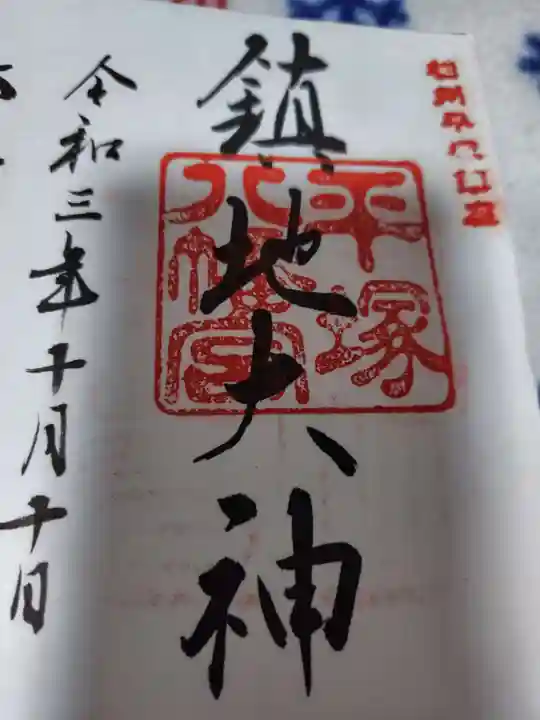 鎮地大神
平塚
八幡宮
令和三年十月十日